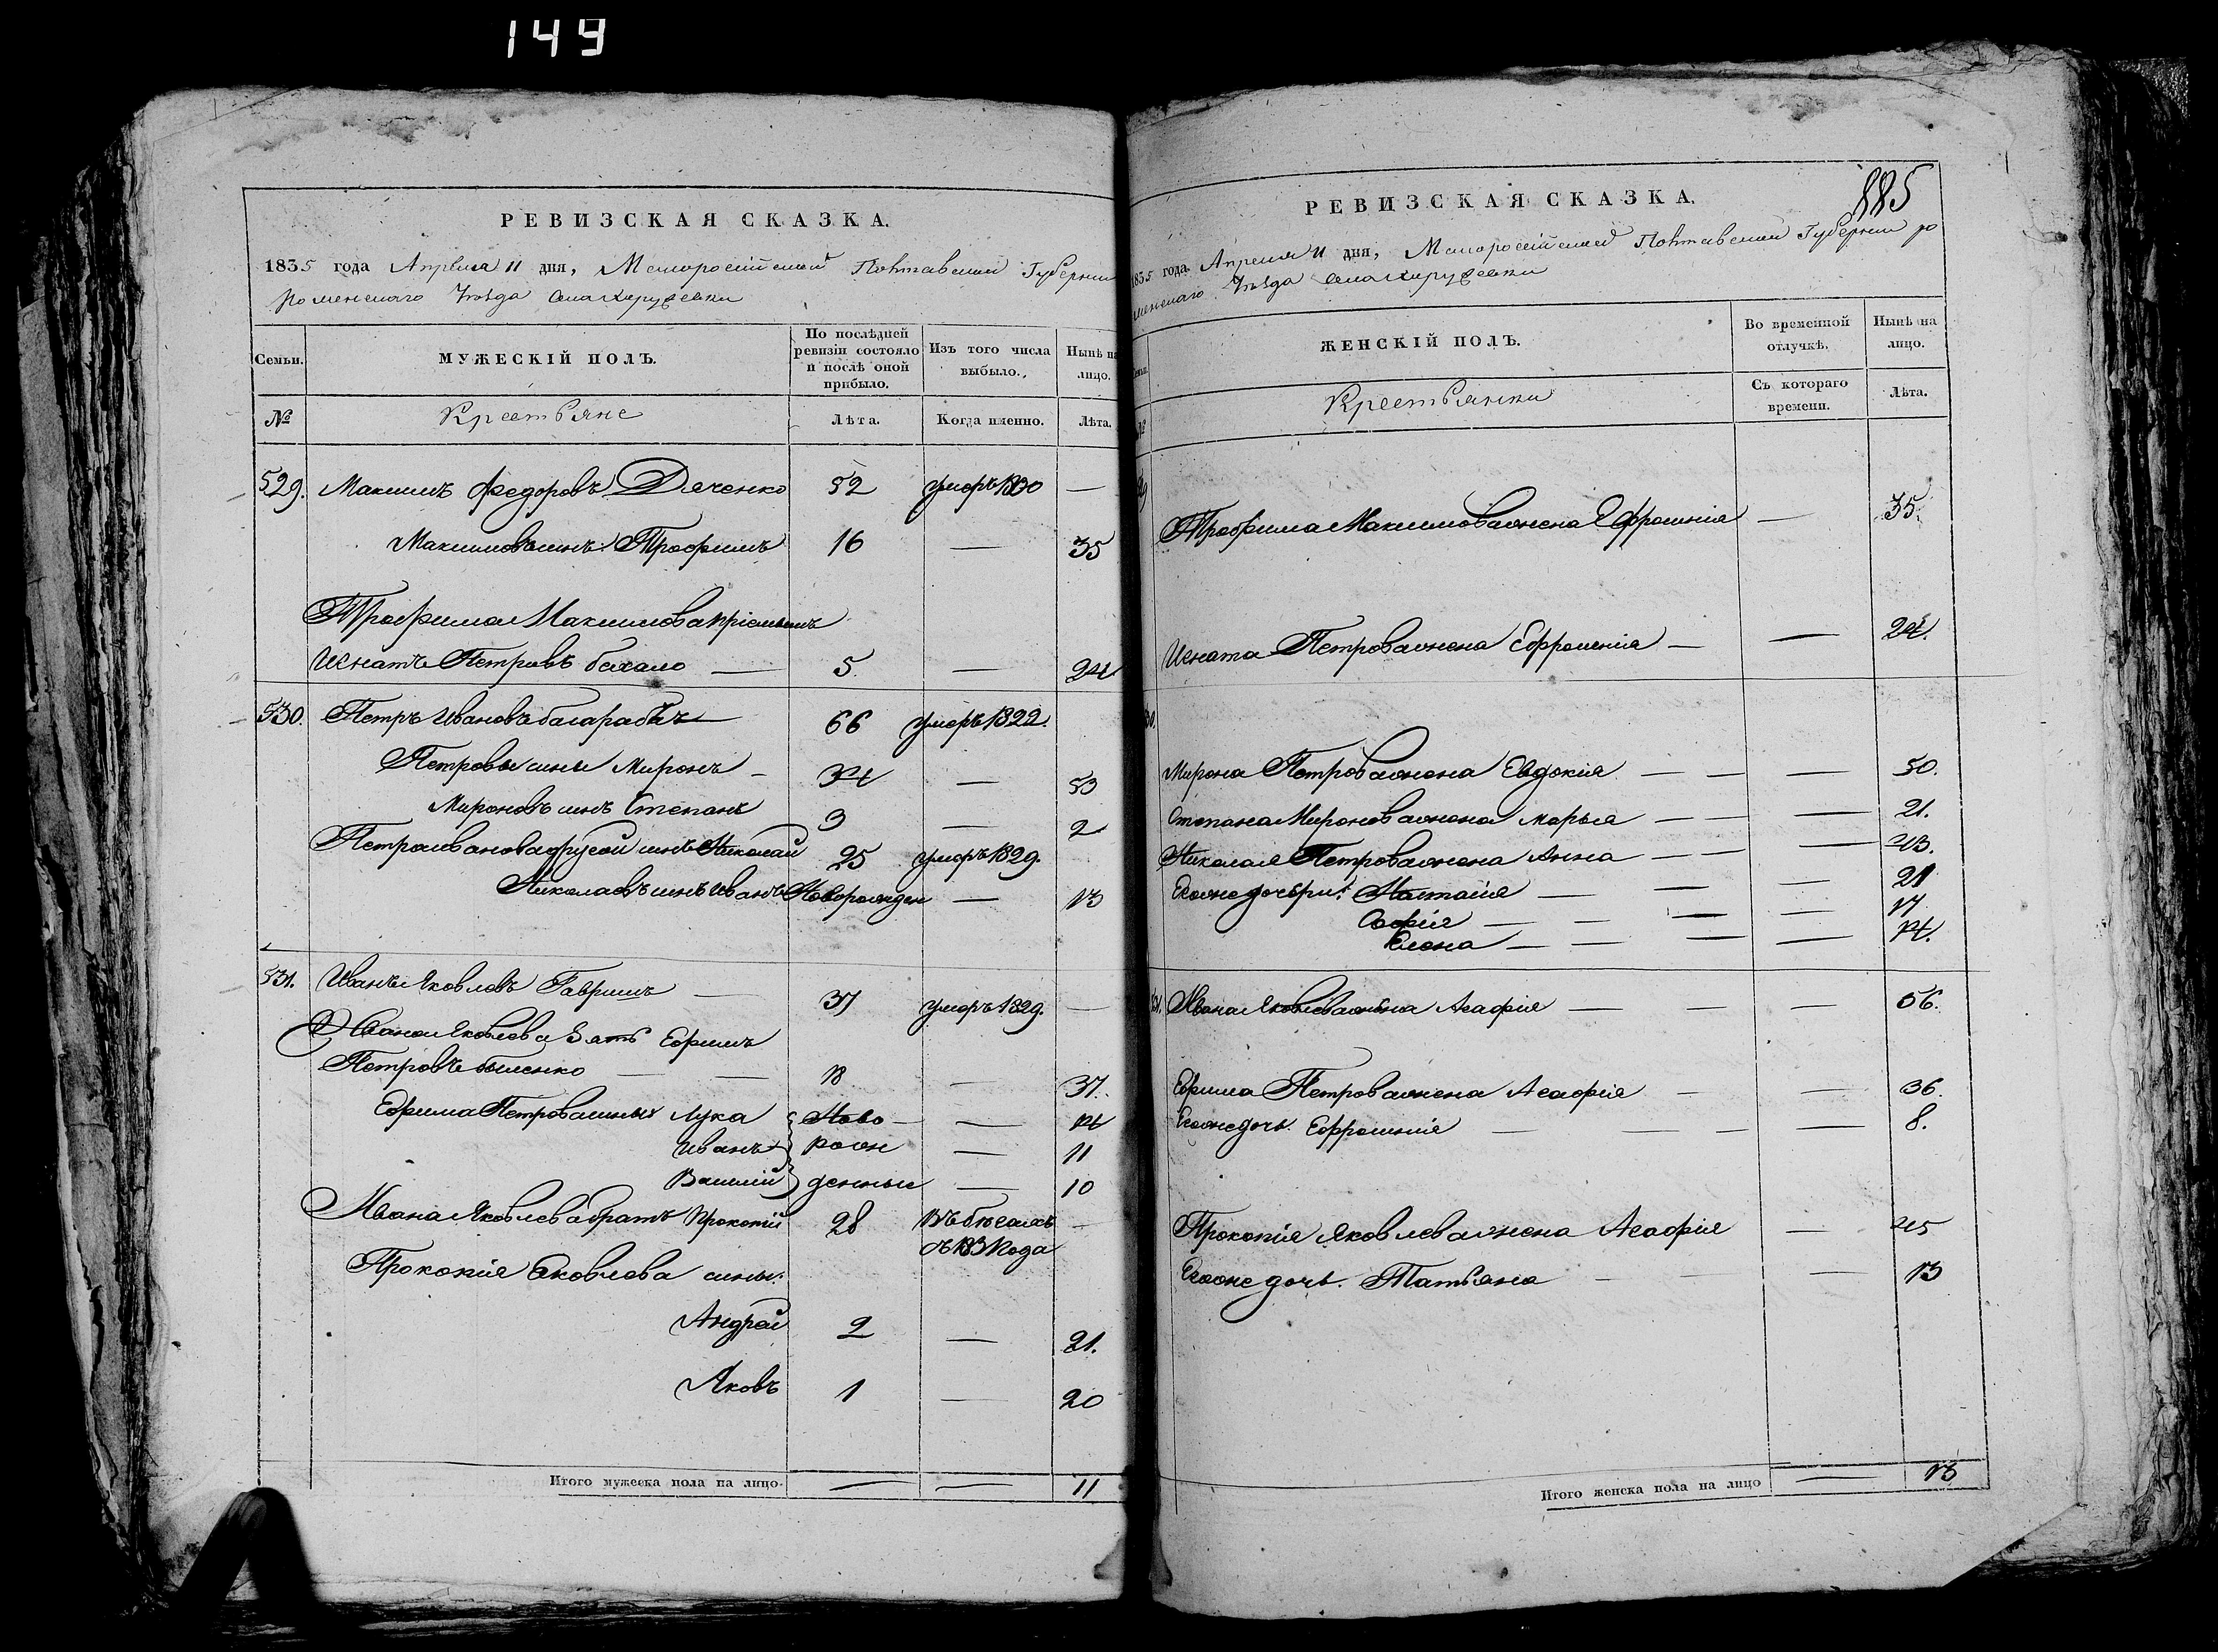 149
РЕВИЗСКАЯ СКАЗКА.
1835 года Апреля 11 дня, Малоросійской Полтавской Губерніи
роменскаго Уѣзда села
Семьи.
МУЖЕСКІЙ ПОЛЪ.
По послѣдней ревизіи состояло и послѣ оной прибыло.
Изъ того числа выбыло.
Нынѣ на лицо.
№
Крестьяне
Лѣта.
Когда именно.
Лѣта.
529. Максимъ Федоровъ Дяченко 52 умеръ 1830 —
Максимовъ сынъ Трофимъ 16 — 35
Трофима Максимова пріемышъ
Игнатъ Петровъ — 5. — 24
530. Петръ Ивановъ — 66 умеръ 1822.
Петровы сыны Миронъ — 34 — 53
Мироновъ сынъ Степанъ 3 — 2
Петра Иванова другой сынъ Николай 25 умеръ 1829.
Николаевъ сынъ Иванъ Новорожден — 13
531. Иванъ Яковлевъ Гавришъ — 37 умеръ 1829. —
Ивана Яковлева Зять Ефимъ
Петровъ — — 18 — 37.
Ефима Петрова сыны Лука Ново — — 14
Иванъ рож — 11
Василій денные — 10
Ивана Яковлева братъ Прокопій 28 Въ бѣгахъ —
съ 1831 года
Прокопія Яковлева сыны:
Андрей 2 — 21.
Яковъ 1 — 20
Итого мужеска пола на лицо. — — 11
885
РЕВИЗСКАЯ СКАЗКА.
1835 года Апреля 11 дня, Малоросійской Полтавской Губерніи ро
менскаго Уѣзда села
ЖЕНСКІЙ ПОЛЪ.
Во временной отлучкѣ.
Нынѣ на лицо.
Крестьянки
Съ котораго времени.
Лѣта.
Трофима Максимова жена Ефросинія — 35.
Игната Петрова жена Ефросинія — — 24.
Мирона Петрова жена Евдокія — — — 50.
Степана Миронова жена Марья — — — 21.
Николая Петрова жена Анна — — — 43.
Егоже дочери: Настасія — — — 21
Софія — — — — 17
Елена — — — — 14.
Ивана Яковлева жена Агафія — — — 56.
Ефима Петрова жена Агафія — — 36.
Егоже дочь. Ефросинія — — — — 8.
Прокопія Яковлева жена Агафія — 45
Егоже дочь. Татьяна — — — 13
Итого женска пола на лицо — 13